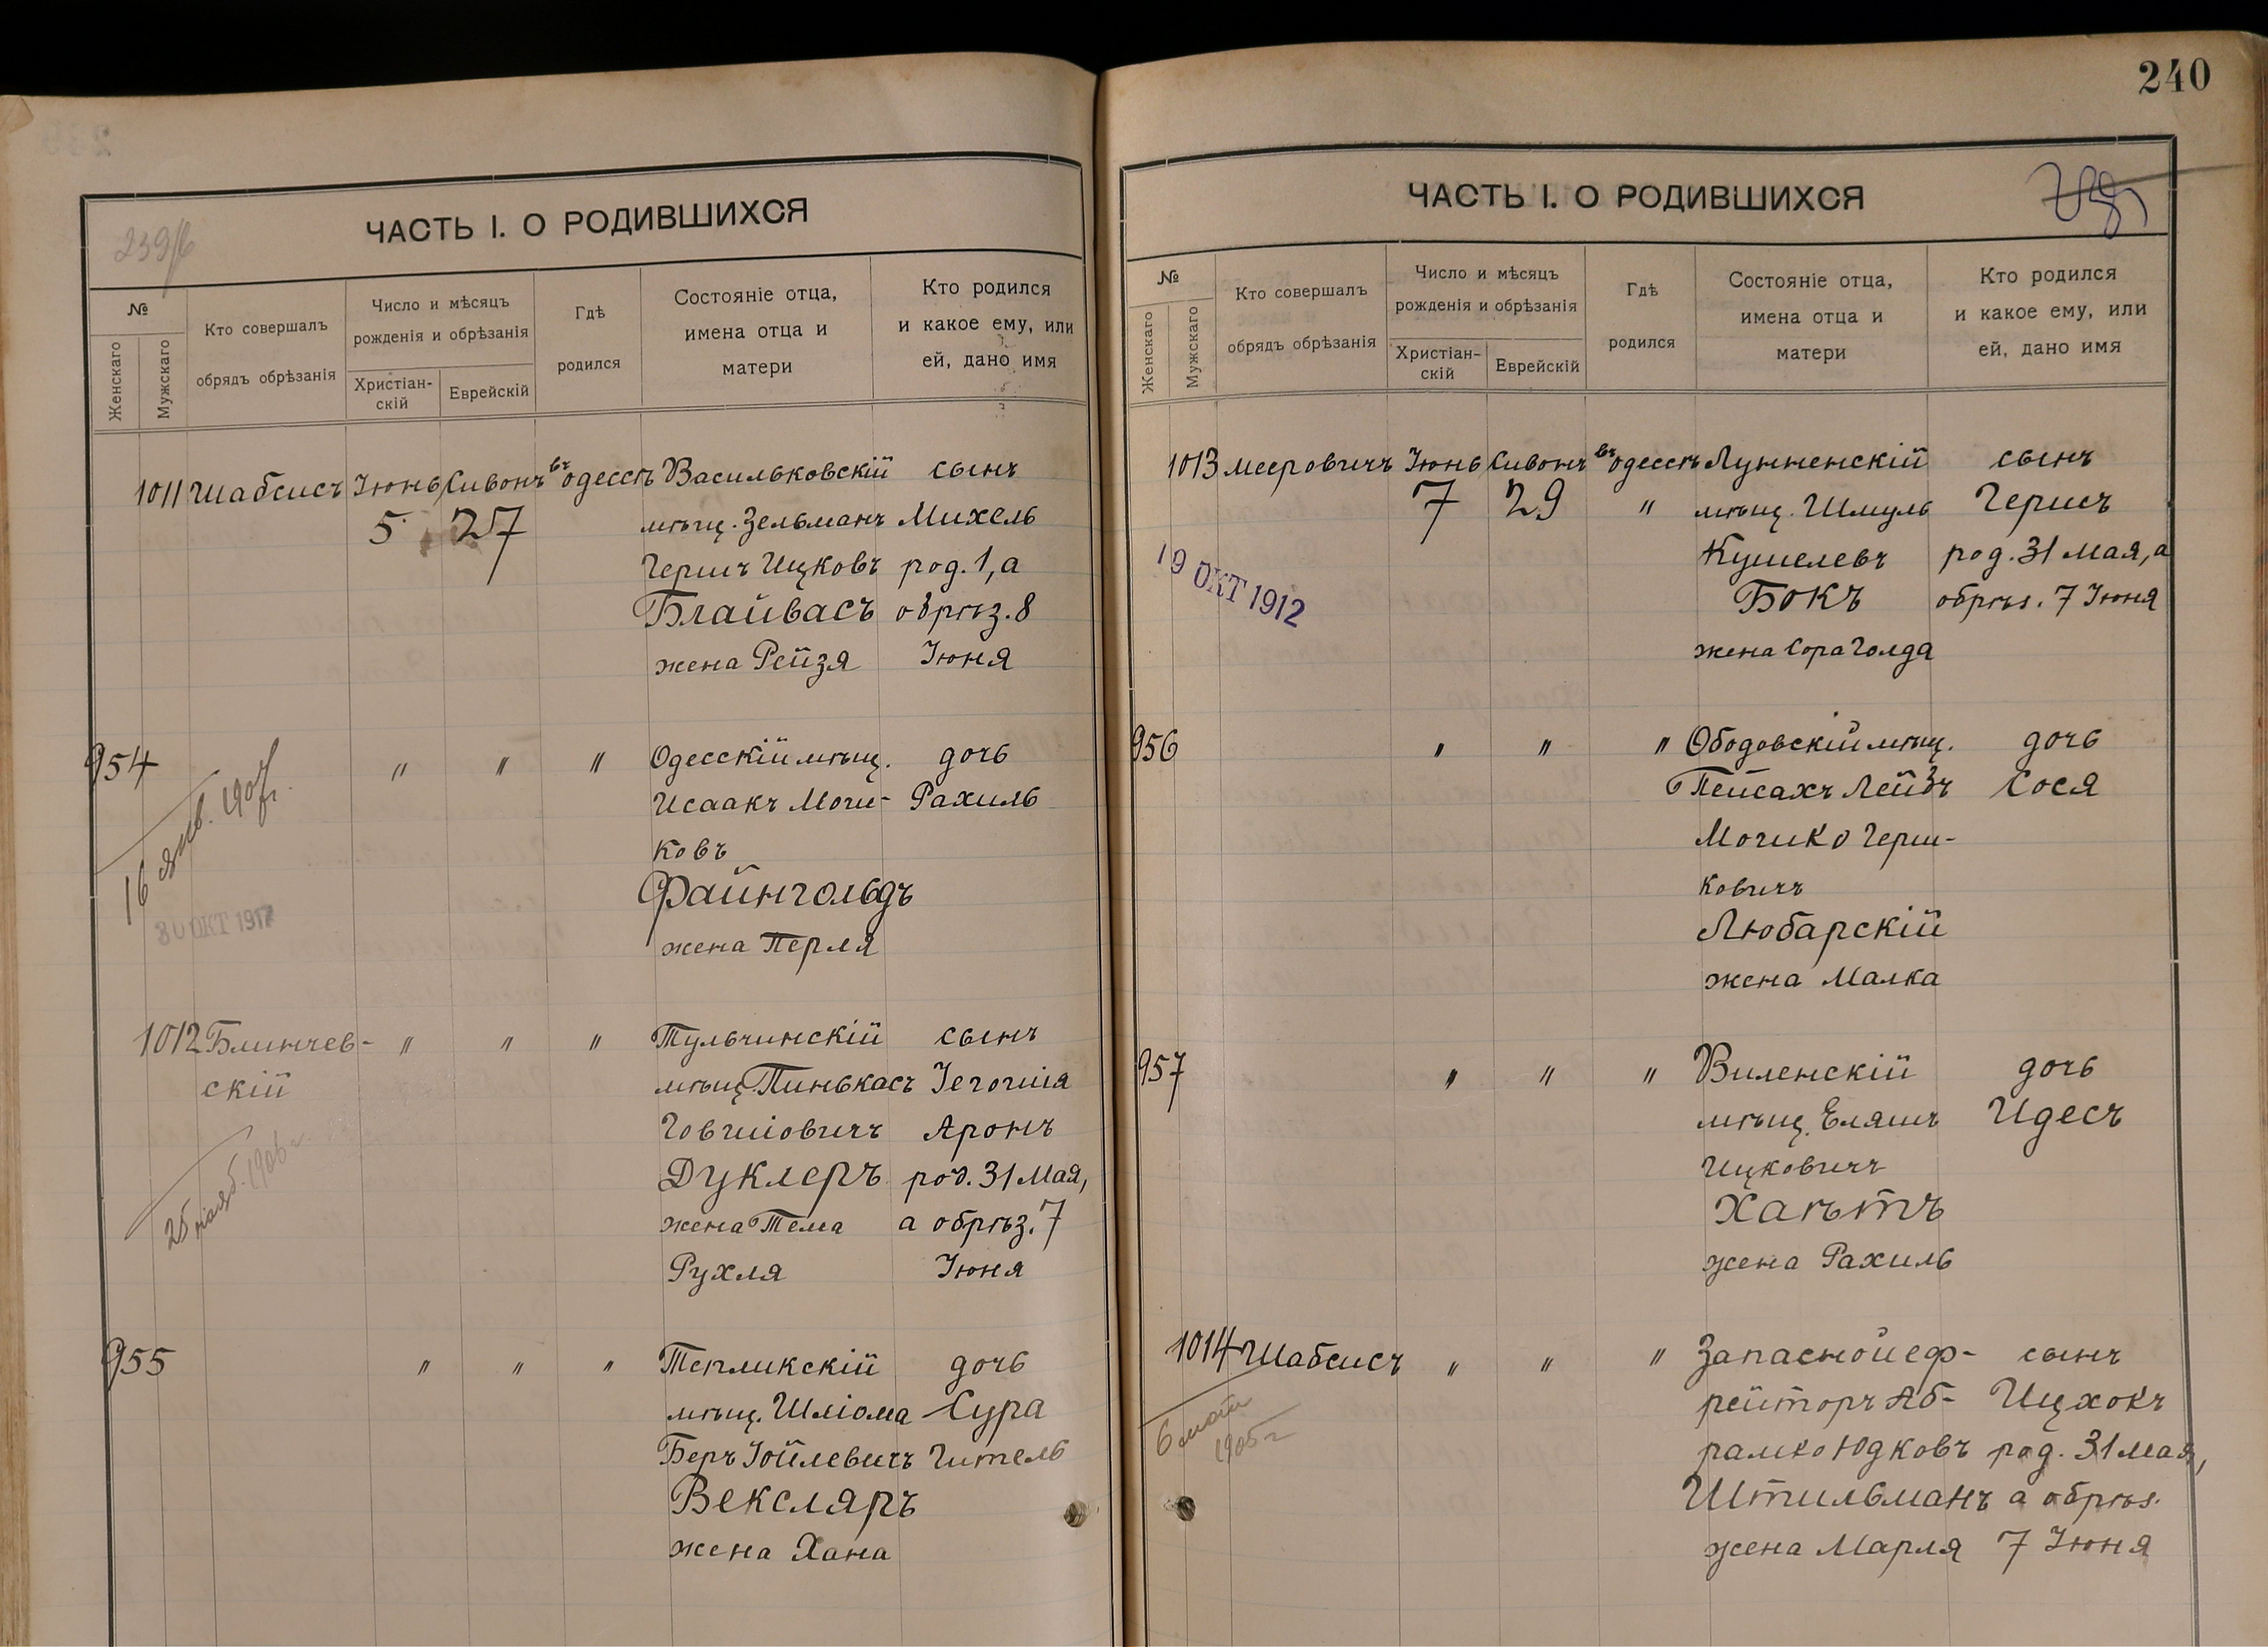 ЧАСТЬ I. О РОДИВШИХСЯ
239/б
№
Женскаго
Мужскаго
Кто совершалъ
обрядъ обрѣзанія
Число и мѣсяцъ
рожденія и обрѣзанія
Христіан-
скій
Еврейскій
Гдѣ
родился
Состояніе отца,
имена отца и
матери
Кто родился
и какое ему, или
ей, дано имя
1011 Шабсисъ Іюнь Сивонъ въ Одессѣ Васильковскій сынъ
5 27 мѣщ. Зельманъ Михель
Гершъ Ицковъ род. 1, а
Блайвасъ обрѣз. 8
жена Рейзя Іюня
954 " " " Одесскій мѣщ. дочь
16 янв. 1907 г. Исаакъ Мош- Рахиль
ковъ
Файнгольдъ
30 ОКТ 1917
жена Перля
1012 Блинчев- " " " Тульчинскій сынъ
скій мѣщ. Пинькасъ Іегошіа
Говшіовичъ Аронъ
25 нояб. 1906 г.
Дуклеръ род. 31 Мая,
жена Тема а обрѣз. 7
Рухля Іюня
955 " " " Тепликскій дочь
мѣщ. Шліома Сура
Беръ Іойлевичъ Гитель
Вексляръ
жена Хана
240
ЧАСТЬ I. О РОДИВШИХСЯ
№
Женскаго
Мужскаго
Кто совершалъ
обрядъ обрѣзанія
Число и мѣсяцъ
рожденія и обрѣзанія
Христіан-
скій
Еврейскій
Гдѣ
родился
Состояніе отца,
имена отца и
матери
Кто родился
и какое ему, или
ей, дано имя
1013 Мееровичъ Іюнь Сивонъ въ Одессѣ Лунненскій сынъ
7 29 " мѣщ. Шмуль Гершъ
Кушелевъ род. 31 Мая, а
19 ОКТ 1912
Бокъ обрѣз. 7 Іюня
жена Сора Голда
956 " " " Ободовскій мѣщ. дочь
Пейсахъ Лейзъ Сося
Мошко Герш-
ковичъ
Любарскій
жена Малка
957 " " " Виленскій дочь
мѣщ. Еляшъ Идесъ
Ицковичъ
Хаѣтъ
жена Рахиль
1014 Шабсисъ " " " Запасной еф- сынъ
рейторъ Аб- Ицхокъ
1905 г.
рамко Юдковъ род. 31 Мая,
Штильманъ а обрѣз.
жена Марля 7 Іюня